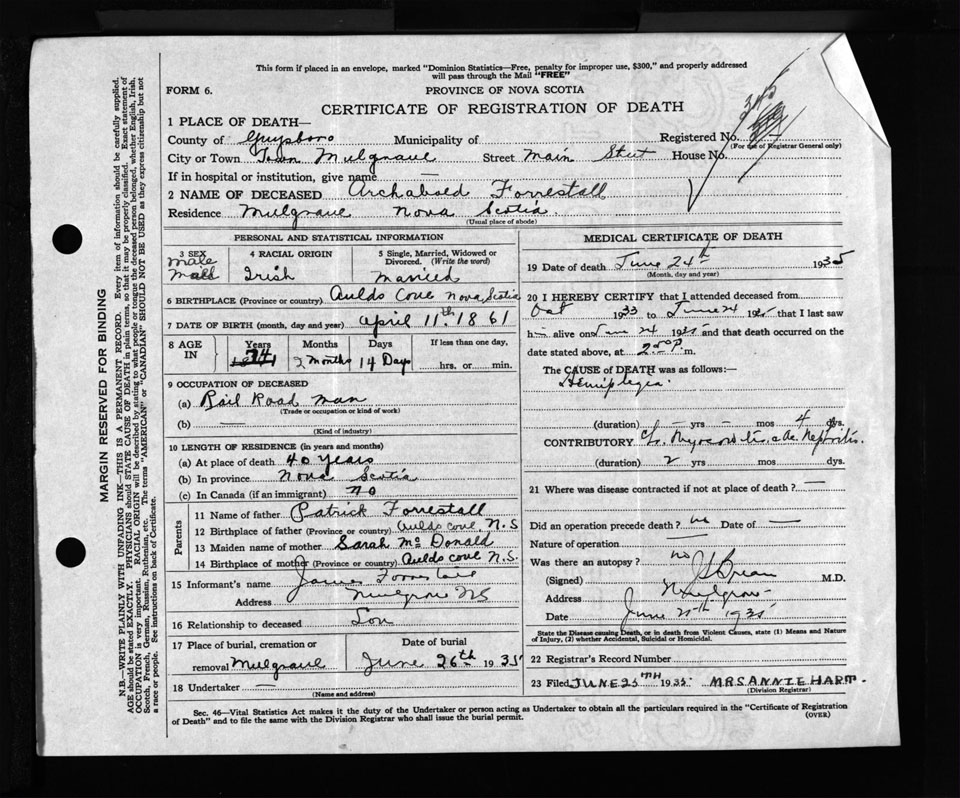 This form if placed in an envelope, marked "Dominion Statistics—Free, penalty for improper use, $300," and properly addressed
will pass through the Mail "FREE"
FORM 6.
PROVINCE OF NOVA SCOTIA
CERTIFICATE OF REGISTRATION OF DEATH
1 PLACE OF DEATH—
County of Guysboro Municipality of Registered No.
(For use of Registrar General only)
City or Town Town Mulgrave Street Main Street House No.
If in hospital or institution, give name —
2 NAME OF DECEASED Archabald Forrestall
Residence Mulgrave Nova Scotia.
(Usual place of abode)
PERSONAL AND STATISTICAL INFORMATION
3 SEX
male
Mall
4 RACIAL ORIGIN
Irish
5 Single, Married, Widowed or
Divorced. (Write the word)
Married
6 BIRTHPLACE (Province or country) Aulds Cove Nova Scotia
7 DATE OF BIRTH (month, day and year) April 11th 1861
8 AGE
IN
Years
74
Months
2 months
Days
14 Days
If less than one day,
hrs. or min.
9 OCCUPATION OF DECEASED
(a) Rail Road man
(Trade or occupation or kind of work)
(b) —
(Kind of industry)
10 LENGTH OF RESIDENCE (in years and months)
(a) At place of death 40 years
(b) In province Nova Scotia
(c) In Canada (if an immigrant) no
Parents
11 Name of father Patrick Forrestall
12 Birthplace of father (Province or country) Aulds cove N.S
13 Maiden name of mother Sarah McDonald
14 Birthplace of mother (Province or country) Aulds cove N.S.
15 Informant's name James Forrestall
Address Mulgrave NS
16 Relationship to deceased Son
17 Place of burial, cremation or
removal Mulgrave
Date of burial
June 26th 1935
18 Undertaker —
(Name and address)
MEDICAL CERTIFICATE OF DEATH
19 Date of death June 24th 1935
(Month, day and year)
20 I HEREBY CERTIFY that I attended deceased from
Oct 1933 to June 24 1935 that I last saw
him alive on June 24 1935 and that death occurred on
date stated above, at P.m.
The CAUSE of DEATH was as follows:—
Hemiplegia.
(duration) — yrs — mos 4 dys.
CONTRIBUTORY Nephritis.
(duration) 2 yrs mos dys.
21 Where was disease contracted if not at place of death? —
Did an operation precede death? no Date of —
Nature of operation —
Was there an autopsy? no
(Signed) M.D.
Address Mulgrave
Date June 25th 1935
State the Disease causing Death, or in death from Violent Causes, state (1) Means and Nature
of Injury, (2) whether Accidental, Suicidal or Homicidal.
22 Registrar's Record Number
23 Filed JUNE 25TH 1935 MRS ANNIE HART.
(Division Registrar)
Sec. 46—Vital Statistics Act makes it the duty of the Undertaker or person acting as Undertaker to obtain all the particulars required in the "Certificate of Registration
of Death" and to file the same with the Division Registrar who shall issue the burial permit.
(OVER)
MARGIN RESERVED FOR BINDING
N.B.—WRITE PLAINLY WITH UNFADING INK—THIS IS A PERMANENT RECORD. Every item of information should be carefully supplied.
AGE should be stated EXACTLY. PHYSICIANS should STATE CAUSE OF DEATH in plain terms, so that it may be properly classified. Exact statement of
OCCUPATION is very important. RACIAL ORIGIN will be described by stating to what people or tongue the deceased person belonged, whether English, Irish,
Scotch, French, German, Russian, Ruthenian, etc. The terms "AMERICAN" or "CANADIAN" SHOULD NOT BE USED as they express citizenship but not
a race or people. See instructions on back of Certificate.